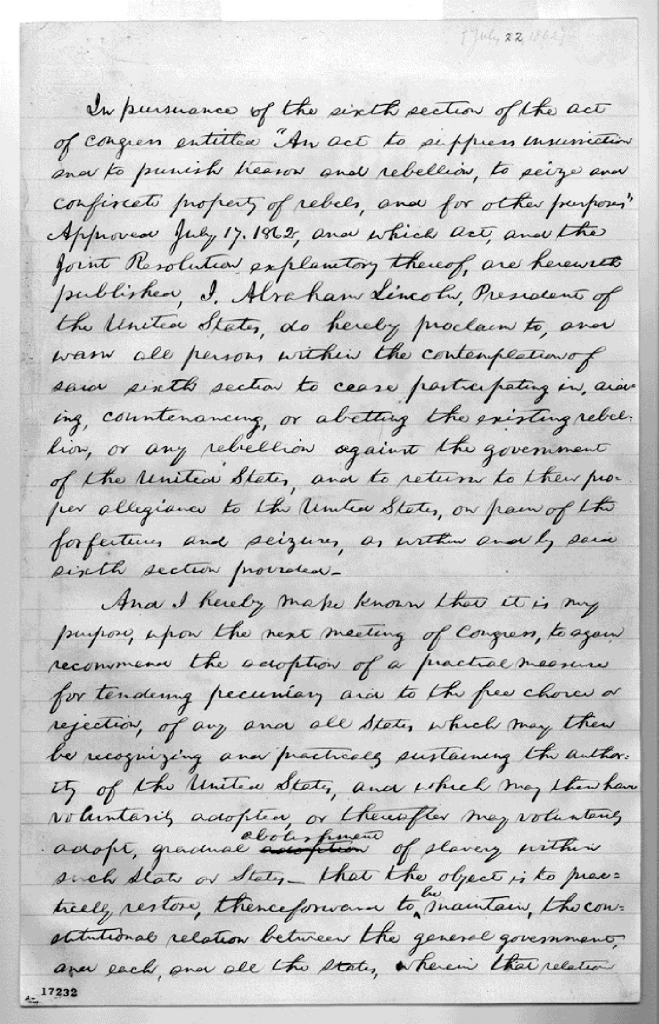 [July 22, 1862]
In pursuance of the sixth section of the act
of congress entitled "An act to suppress insurrection
and to punish treason and rebellion, to seize and
confiscate property of rebels, and for other purposes"
Approved July 17. 1862, and which act, and the
Joint Resolution explanatory thereof, are herewith
published, I, Abraham Lincoln, President of
the United States, do hereby proclaim to, and
warn all persons within the contemplation of
said sixth section to cease participating in, aid-
ing, countenancing, or abetting the existing rebel-
lion, or any rebellion against the government
of the United States, and to return to their pro-
per allegiance to the United States, on pain of the
forfeitures and seizures, as within and by said
sixth section provided—
And I hereby make known that it is my
purpose, upon the next meeting of Congress, to again
recommend the adoption of a practical measure
for tendering pecuniary aid to the free choice or
rejection, of any and all States which may then
be recognizing and practically sustaining the author-
ity of the United States, and which may then have
voluntarily adopted, or thereafter may voluntarily
adopt, gradual adoption abolishment of slavery within
such State or States— that the object is to prac-
tically restore, thenceforward to be maintain, the con-
stitutional relation between the general government,
and each, and all the states, wherein that relation
17232